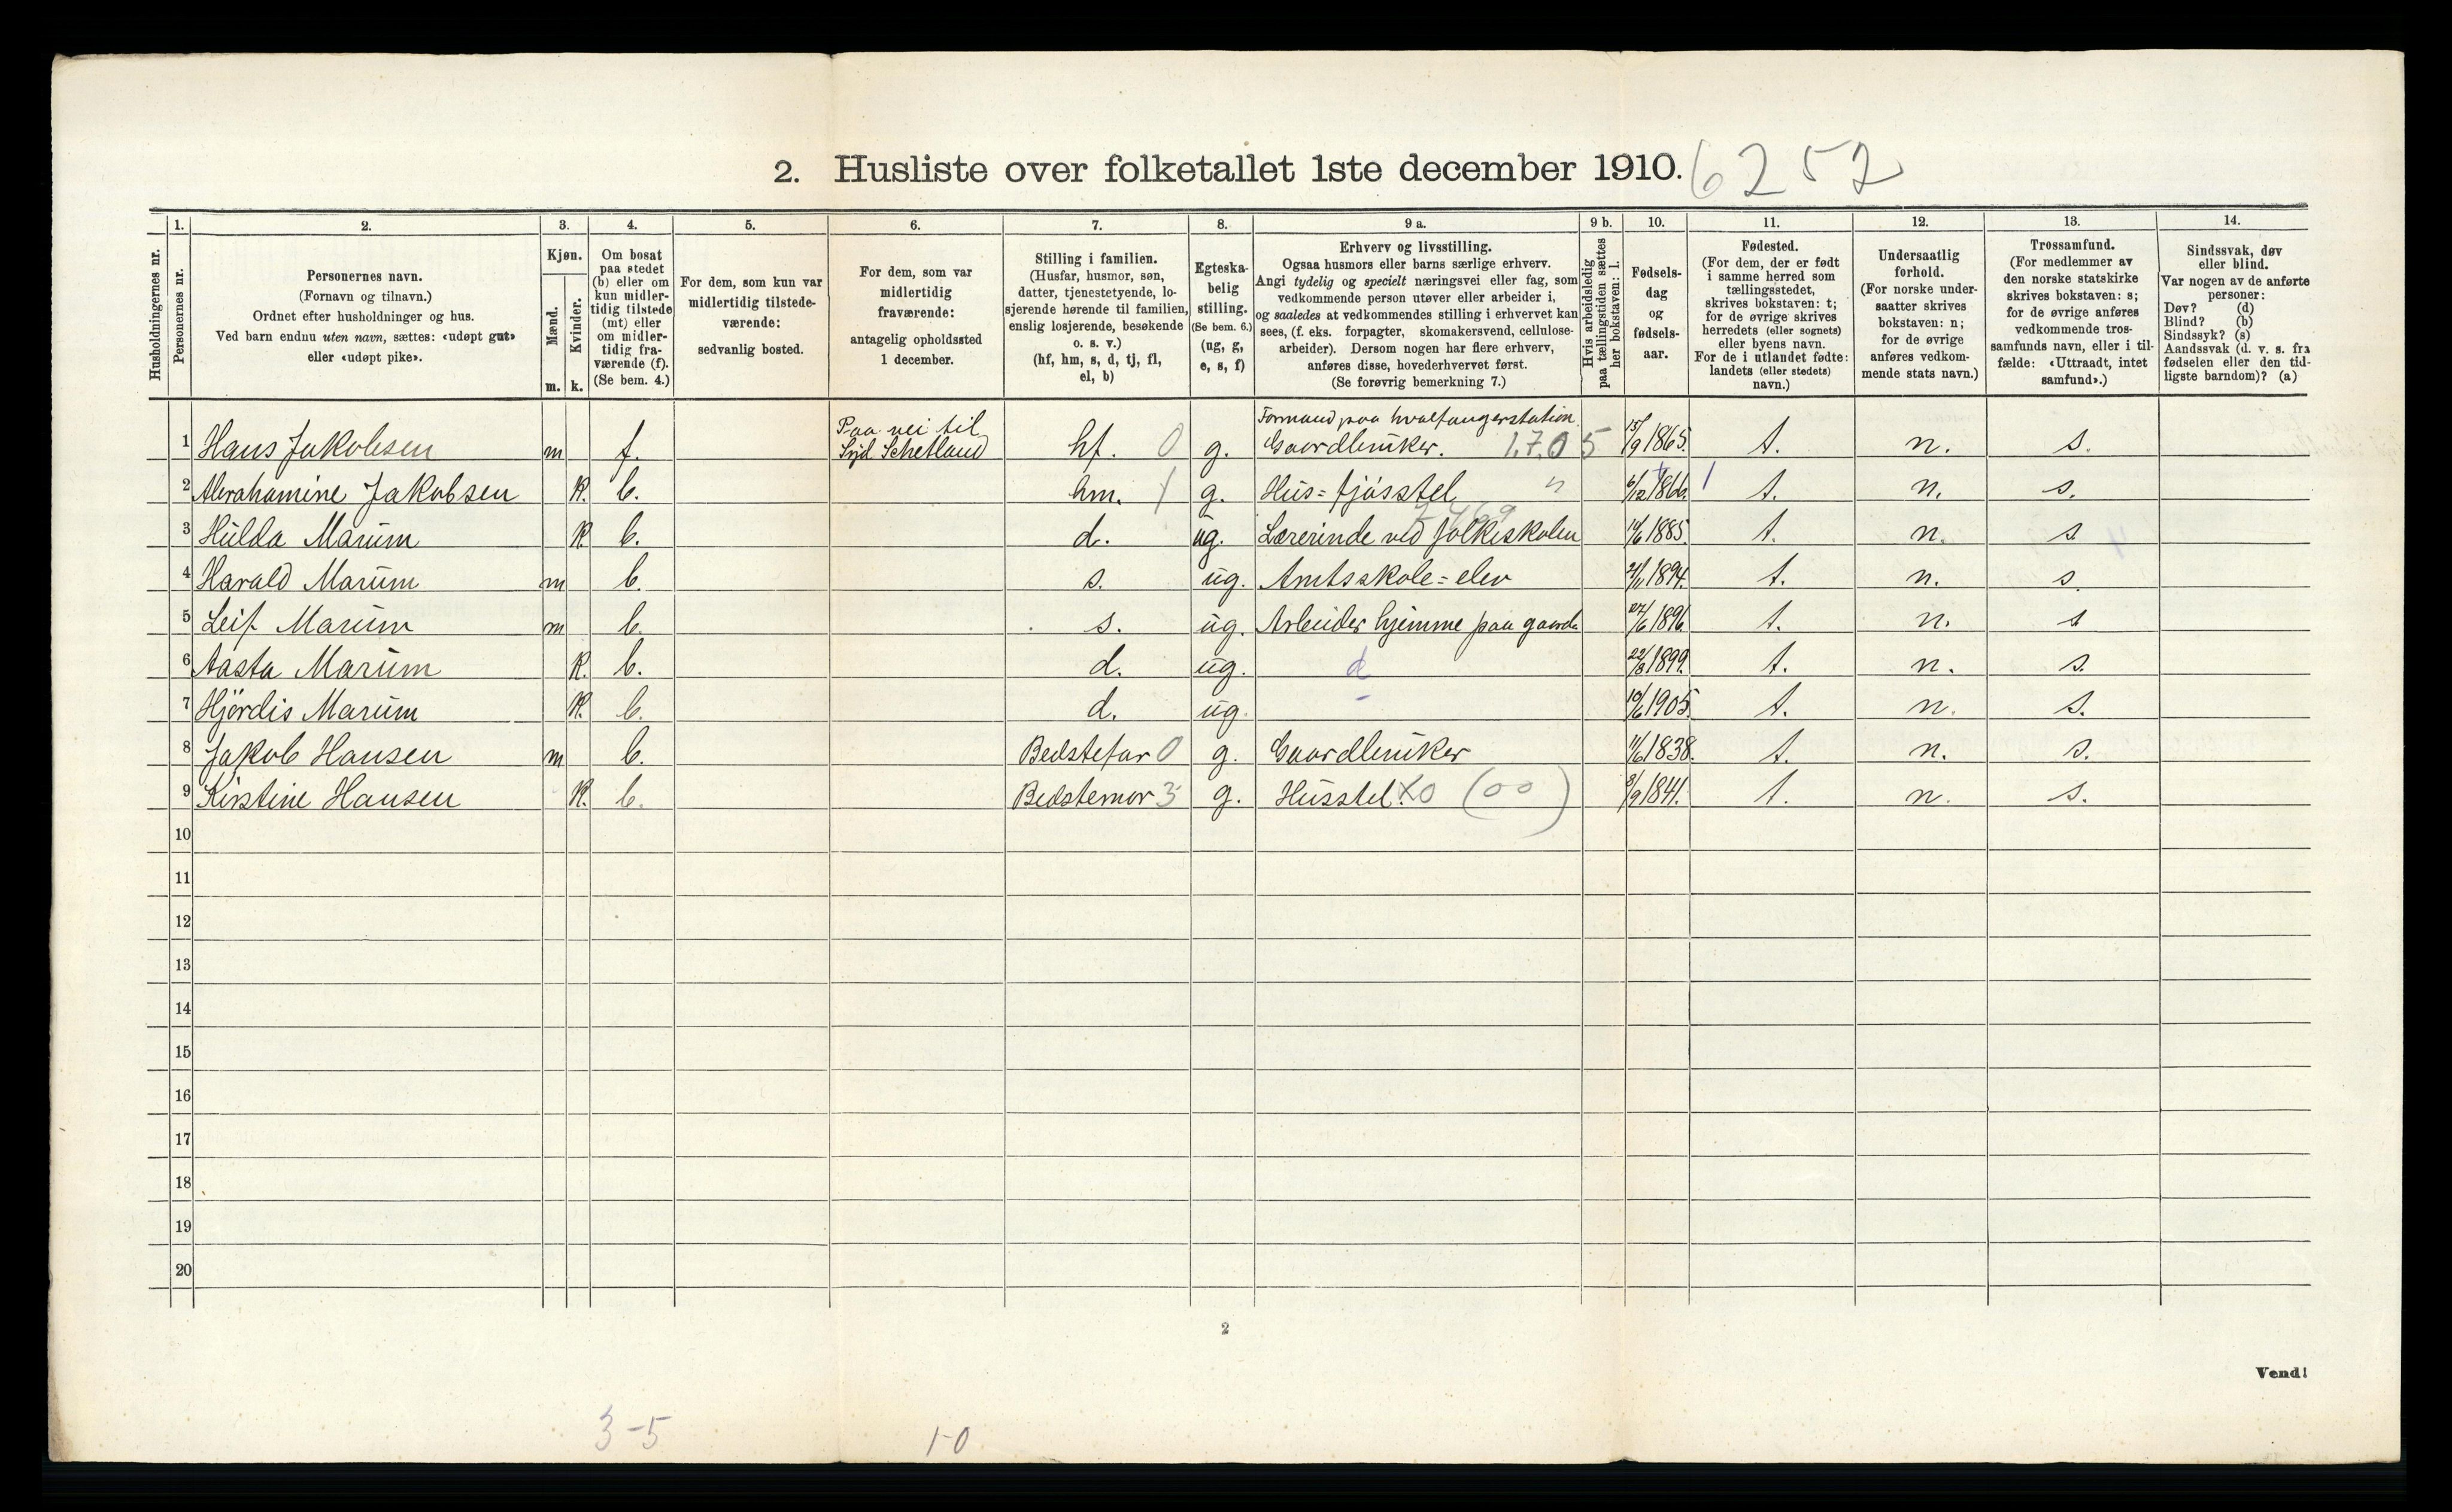 2. Husliste over folketallet 1ste december 1910. 6252
1. 2. 3. 4. 5. 6. 7. 8. 9 a. 9 b. 10. 11. 12. 13. 14.
Husholdningernes nr.
Personernes nr.
Personernes navn.
(Fornavn og tilnavn.)
Ordnet efter husholdninger og hus.
Ved barn endnu uten navn, sættes: «udøpt gut»
eller «udøpt pike».
Kjøn.
Mænd.
Kvinder.
m. k.
Om bosat
paa stedet
(b) eller om
kun midler-
tidig tilstede
(mt) eller
om midler-
tidig fra-
værende (f).
(Se bem. 4.)
For dem, som kun var
midlertidig tilstede-
værende:
sedvanlig bosted.
For dem, som var
midlertidig
fraværende:
antagelig opholdssted
1 december.
Stilling i familien.
(Husfar, husmor, søn,
datter, tjenestetyende, lo-
sjerende hørende til familien,
enslig losjerende, besøkende
o. s. v.)
(hf, hm, s, d, tj, fl,
el, b)
Egteska-
belig
stilling.
(Se bem. 6.)
(ug, g,
e, s, f)
Erhverv og livsstilling.
Ogsaa husmors eller barns særlige erhverv.
Angi tydelig og specielt næringsvei eller fag, som
vedkommende person utøver eller arbeider i,
og saaledes at vedkommendes stilling i erhvervet kan
sees, (f. eks. forpagter, skomakersvend, cellulose-
arbeider). Dersom nogen har flere erhverv,
anføres disse, hovederhvervet først.
(Se forøvrig bemerkning 7.)
Hvis arbeidsledig
paa tællingstiden sættes
her bokstaven: l.
Fødsels-
dag
og
fødsels-
aar.
Fødested.
(For dem, der er født
i samme herred som
tællingsstedet,
skrives bokstaven: t;
for de øvrige skrives
herredets (eller sognets)
eller byens navn.
For de i utlandet fødte:
landets (eller stedets)
navn.)
Undersaatlig
forhold.
(For norske under-
saatter skrives
bokstaven: n;
for de øvrige
anføres vedkom-
mende stats navn.)
Trossamfund.
(For medlemmer av
den norske statskirke
skrives bokstaven: s;
for de øvrige anføres
vedkommende tros-
samfunds navn, eller i til-
fælde: «Uttraadt, intet
samfund».)
Sindssvak, døv
eller blind.
Var nogen av de anførte
personer:
Døv? (d)
Blind? (b)
Sindssyk? (s)
Aandssvak (d. v. s. fra
fødselen eller den tid-
ligste barndom)? (a)
Paa vei til Formand paa hvalfangerstation
1 Hans Jakobsen m f. Syd Schetland hf. 0 g. Gaardbruker. 1.7.0 5 15/9 1865. t. n. s.
2 Abrahamine Jakobsen k. b. hm. 1 g. Hus= fjøsstel " 6/12 1866. 1 t. n. s.
7469
3 Hulda Marum k b. d. ug. Lærerinde ved folkeskolen 1885. t. n. s 4
4 Harald Marum m b. s. ug. Amtsskole=elev 1894. t. n. s.
5 Leif Marum m b. s. ug. Arbeider hjemme paa gaarde 27/6 1896 t. n. s
6 Aasta Marum k. b. d. ug. d 22/8 1899. t. n. s.
7 Hjördis Marum k. b. d. ug. - 10/6 1905. t. n. s.
8 Jakob Hansen m b. Bedstefar 0 g. Gaardbruker 11/6 1838. t. n. s.
9 Kirstine Hansen k. b. Bedstemor 3 g. Husstel. x0 (00) 8/9 1841. t. n. s.
10
11
12
13
14
15
16
17
18
19
20
2
Vend!
3-5 1-0